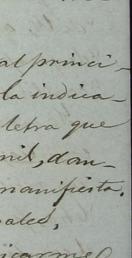 al princi-
la indica-
letra que
mil, dan-
manifiesta,
pales,